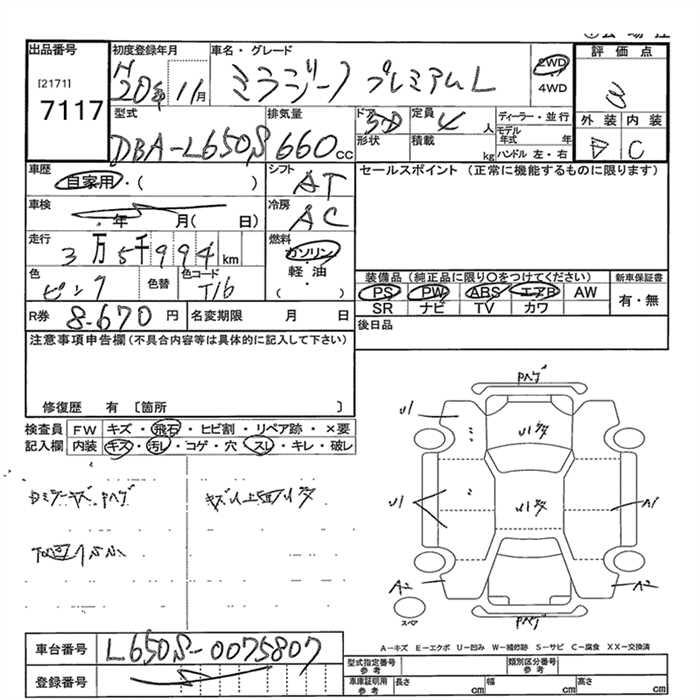 出品番号
[2171]
7117
初度登録年月
H 20年 11月
車名・グレード
ミラジーノ プレミアムL
2WD
4WD
評価点
3
外装 内装
D C
型式
DBA-L650S
排気量
660 cc
ドア 5D
形状
定員 4 人
積載 kg
ディーラー・並行
モデル年式 年
ハンドル 左・右
車歴
自家用・( )
シフト
AT
セールスポイント (正常に機能するものに限ります)
車検
年 月( 日)
冷房
AC
走行
3万5千994 km
燃料
ガソリン・
軽・油
( )
色
ピンク
色替
色コード
T16
装備品(純正品に限り〇をつけてください)
PS PW ABS エアB AW
SR ナビ TV カワ
新車保証書
有・無
R券 8-670 円
名変期限 月 日
後日品
注意事項申告欄(不具合内容等は具体的に記入して下さい)
修復歴 有 [箇所 ]
検査員
記入欄
FW キズ・飛石・ヒビ割・リペア跡・×要
内装 キズ・汚レ・コゲ・穴・スレ・キレ・破レ
Pヘゲ
U1
U1
A1
A2
A2
スペア
Pヘゲ
A-キズ E-エクボ U-凹み W-補修跡 S-サビ C-腐食 XX-交換済
車台番号 L650S-0075807
登録番号
型式指定番号
参考
類別区分番号
参考
車庫証明用
参考
長さ cm
幅 cm
高さ cm